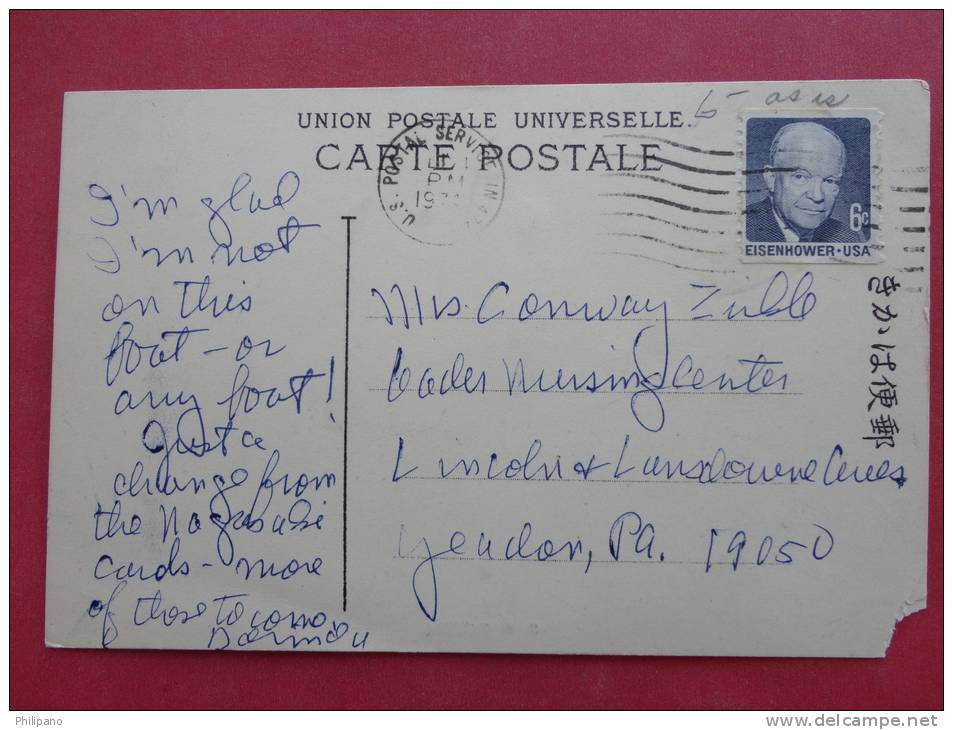 6- as is
UNION POSTALE UNIVERSELLE.
CARTE POSTALE
U.S. POSTAL SERVICE
PM
EISENHOWER·USA
6c
きかは便郵
I'm glad
I'm not
on this
boat - or
any boat!
Just a
change from
the Nagasaki
cards - more
of those to come
Mrs. Conway
Nursing Center
Lincoln & Lansdowne Aves.
Yeadon, Pa. 19050
Philipano
delcampe.net